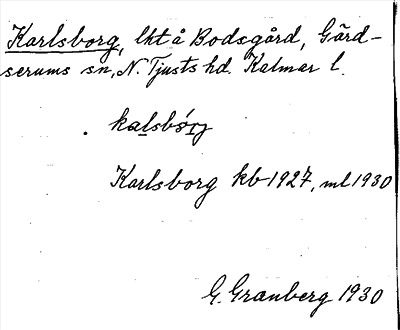 Karlsborg, lht å Bodsgård, Gärd-
serums sn, N. Tjusts hd. Kalmar l.
kalsbórj
Karlsborg kb 1927, ml 1930
G. Granberg 1930